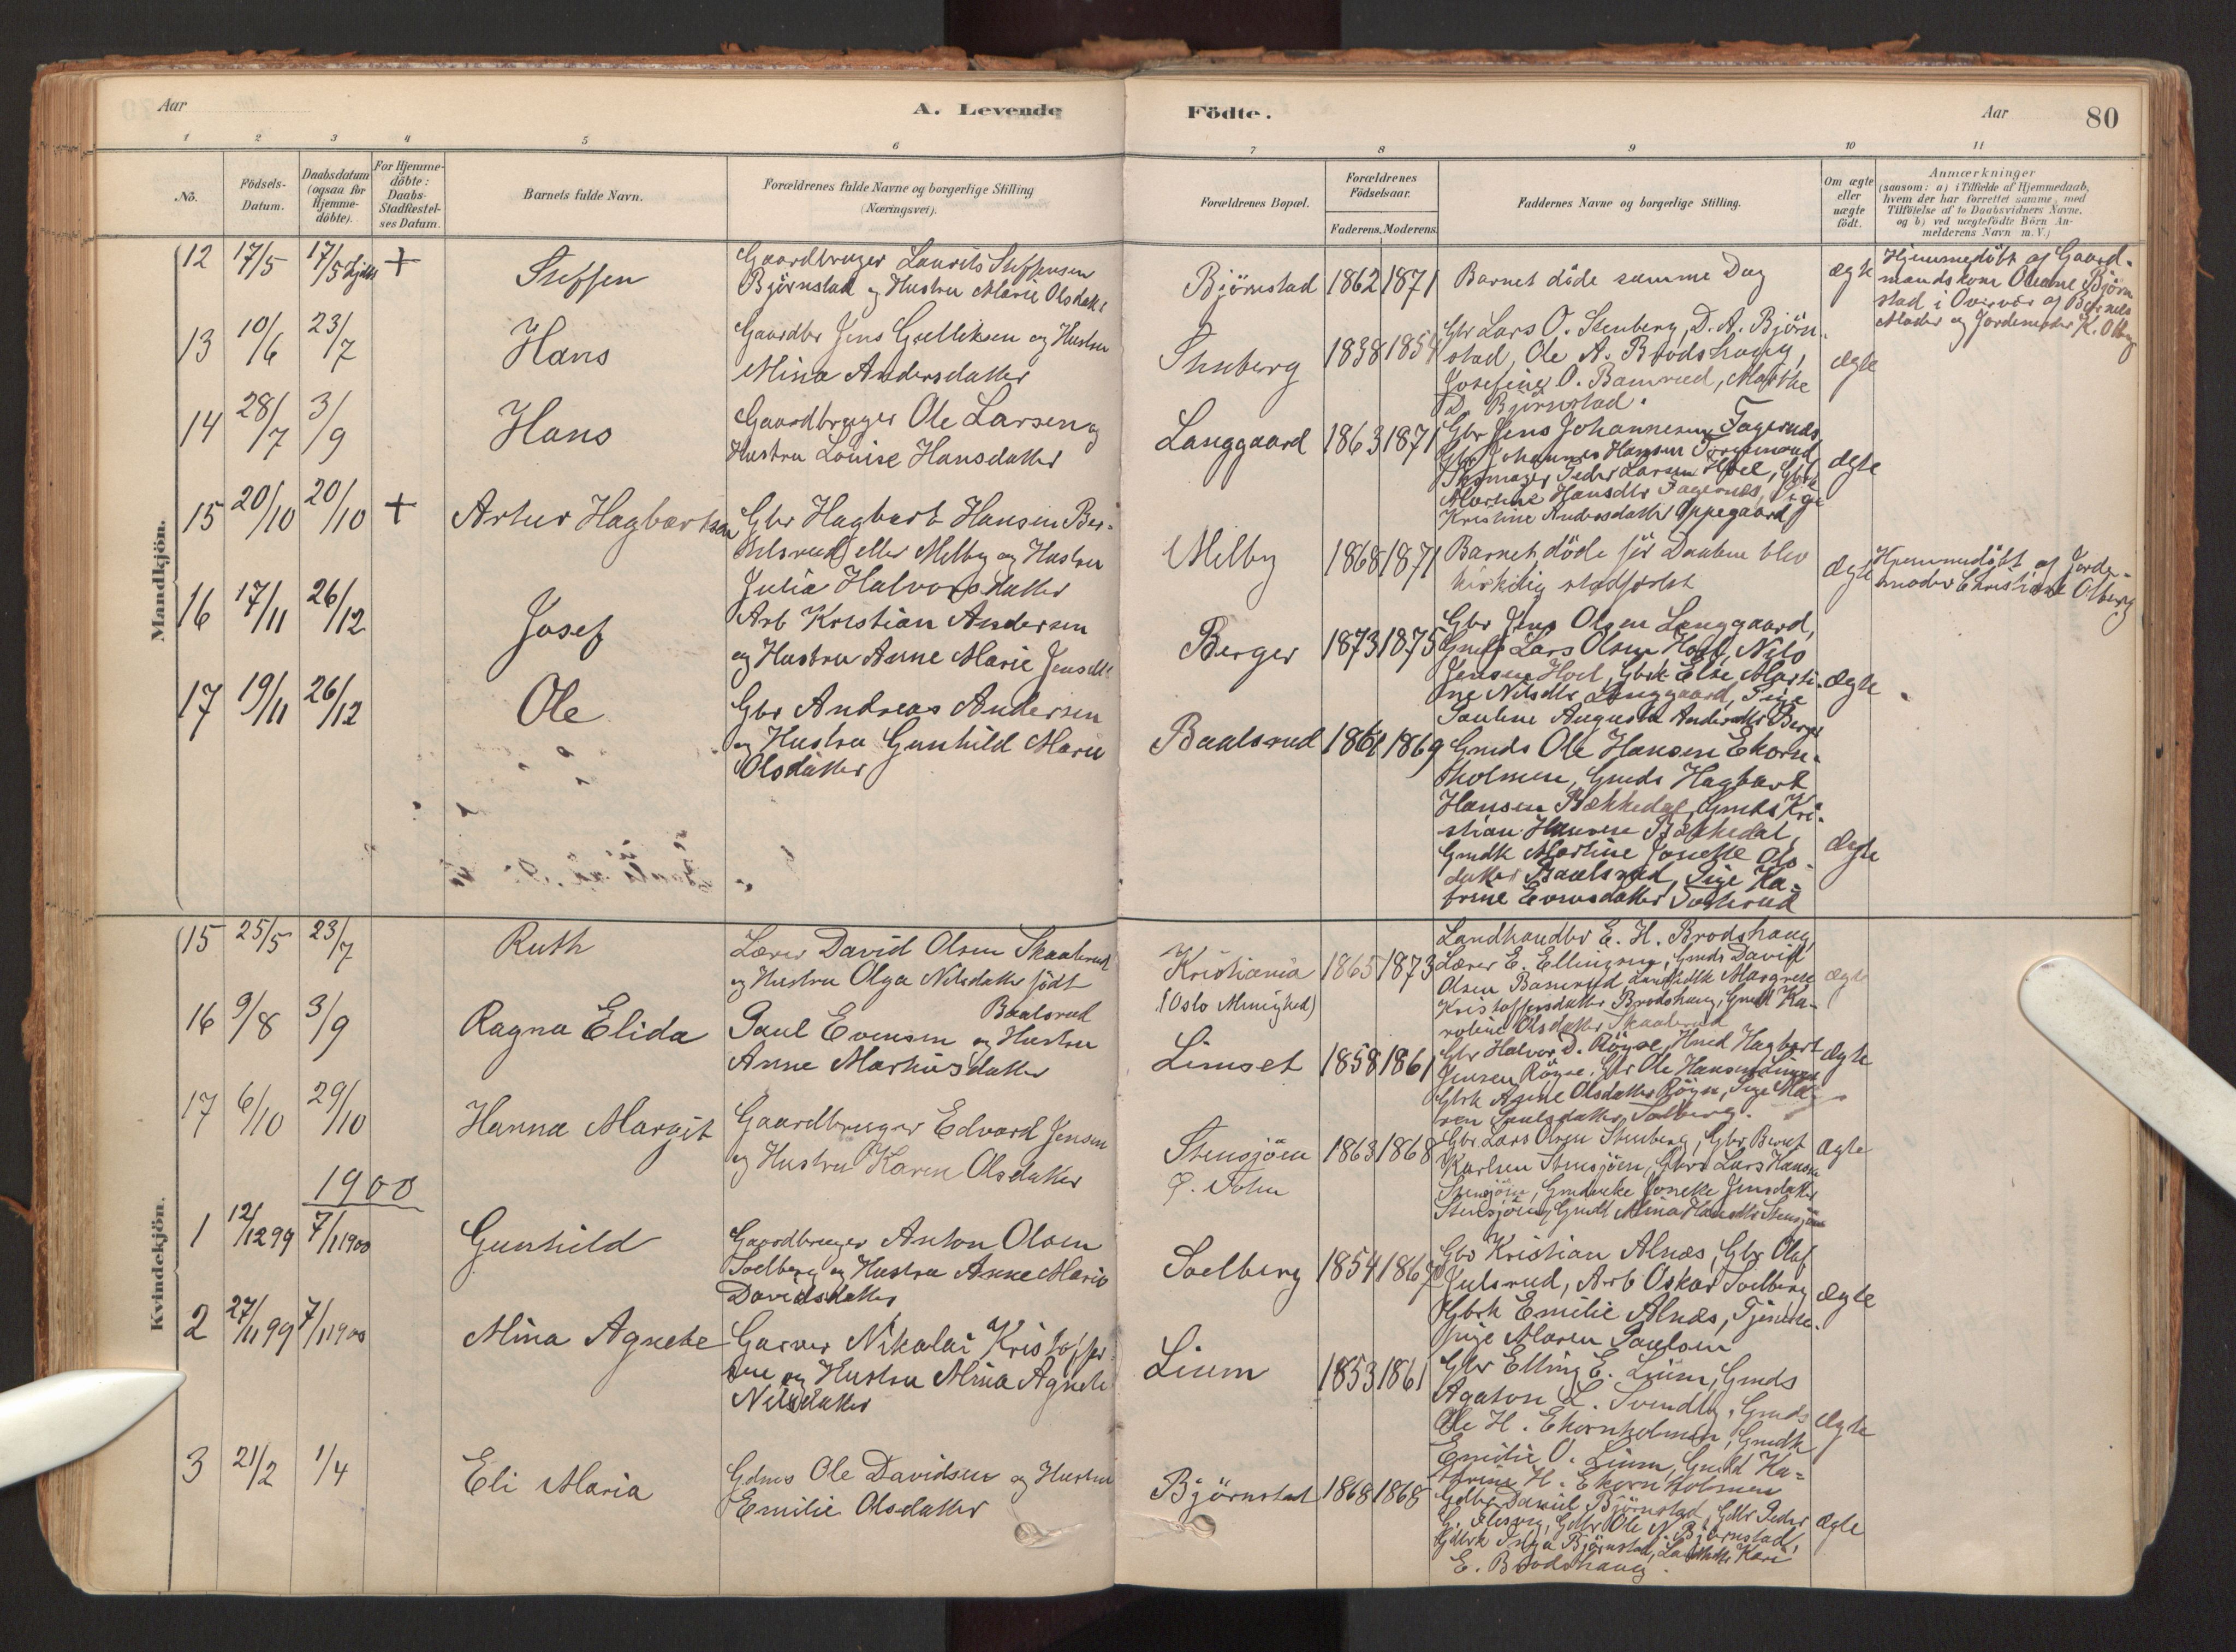 Aar
A. Levende
Födte.
Aar
80
1
2
3
4
5
6
7
8
9
10
11
No.
Födsels-
Datum.
Daabsdatum
(ogsaa for
Hjemme-
döbte).
For Hjemme-
döbte:
Daabs-
Stadfæstel-
ses Datum.
Barnets fulde Navn.
Forældrenes fulde Navne og borgerlige Stilling
(Næringsvei).
Forældrenes Bopæl.
Forældrenes
Födselsaar.
Faderens.
Moderens.
Faddernes Navne og borgerlige Stilling.
Om ægte
eller
uægte
födt.
Anmærkninger
(saasom: a) i Tilfælde af Hjemmedaab,
hvem der har forrettet samme, med
Tilföielse af to Daabsvidners Navne,
og b) ved uægtefödte Börn An-
melderens Navn m.V.)
Mandkjön.
12
17/5
17/5 Hjdb
+
Steffen
Gaardbruger Laurits Steffensen
Björnstad og Hustru Marie Olsdatt
Björnstad
1862
1871
Barnet döde samme Dag
ægte
Hjemmedöbt af Gaard-
mandskone Oleane Björn
stad i Overvær af Barnets
Moder og Jordemoder K. Olberg
13
10/6
23/7
Hans
Gaardbr Jens Gulliksen og Hustru
Mina Andersdatter
Stenberg
1838
1854
Gbr Lars O. Stenberg, D. A. Björn-
stad, Ole A. Brodshaug,
Josefine O. Bamrud, Marthe
D. Björnstad.
ægte
14
28/7
3/9
Hans
Gaardbruger Ole Larsen og
Hustru Louise Hansdatter
Langgaard
1863
1871
Gbr Jens Johannesen Fagernæs
Gbr Johannes Hansen
Skomager Peder Larsen Hoel, Gbrk
Martine Hansdtr Fagernæs, Pige
Kristine Andersdatter Oppegaard
ægte
15
20/10
20/10
+
Artur Hagbartsen
Gbr Hagbart Hansen Ber-
telsrud eller Melby og Hustru
Julia Halvorsdatter
Melby
1868
1871
Barnet döde för Daaben blev
kirkelig stadfæstet
ægte
Hjemmedöbt af Jorde-
moder Christiane Olberg
16
17/11
26/12
Josef
Arb Kristian Andersen
og Hustru Anne Marie Jensdtr
Berger
1873
1875
Gbr Jens Olsen Langgaard,
Gmds Lars Olsen Hoel, Nils
Jensen Hoel, Gbrk Else Marti-
ne Nilsdtr Langgaard, Pige
Pauline Augusta Andersdtr Berger
ægte
17
19/11
26/12
Ole
Gbr Andreas Andersen
og Hustru Gunhild Marie
Olsdatter
Baalsrud
1861
1869
Gmds Ole Hansen Ekorn-
holmen, Gmds Hagbart
Hansen Bækkedal, Gmds Kri-
stian Hansen Bækkedal,
Gmdk Martine Josette Ols-
datter Baalsrud, Pige Ka-
trine Evensdatter
ægte
Kvindekjön.
15
25/5
23/7
Ruth
Lærer David Olsen Skaalerud
og Hustru Olga Nilsdatter födt
Baalsrud
Kristiania
(Oslo Menighed)
1865
1873
Landhandler E. H. Brodshaug
Lærer E. Ellingsen, Gmds David
Olsen Bamrud, Margrete
Kristoffersdatter Brodshaug, Gmdk Ka-
roline Olsdatter Skaalerud
ægte
16
9/8
3/9
Ragna Elida
Paul Evensen og Hustru
Anne Markusdatter
Limset
1858
1861
Gbr Halvor D. Röyse, Hmd Hagbart
Jensen Röyse, Gbr Ole Hansen Limset
Gbrk Agne Olsdatter Röyse, Pige Ma-
ren Paulsdatter Solberg.
ægte
17
6/10
29/10
Hanna Margit
Gaardbruger Edvard Jensen
og Hustru Karen Olsdatter
Stensjöen
1863
1868
Gbr Lars Olsen Stenberg, Gbr Bernt
Karlsen Stensjöen, Gbr Lars Hansen
Stensjöen, Jonette Jensdatter
Stensjöen, Gmdt Mina Hansdtr Stensjöen
ægte
1900
1
12/12 99
7/1 1900
Gunhild
Gaardbruger Anton Olsen
Soelberg og Hustru Anne Marie
Davidsdatter
Soelberg
1854
1867
Gbr Kristian Alnæs, Gbr Olaf
Julsrud, Arb Oskar Soelberg
Gbrk Emilie Alnæs, Tjeneste-
pige Maren Paulsen
ægte
2
27/11 99
7/1 1900
Mina Agnete
Garver Nikolai Kristoffer-
sen og Hustru Mina Agnete
Nilsdatter
Lium
1853
1861
Gbr Elling E. Lium, Gmds
Agaton L. Svendby, Gmds
Ole H. Ekornholmen, Gmdk
Emilie O. Lium, Gmdk Ka-
thrine H. Ekornholmen
ægte
3
21/2
1/4
Eli Maria
Gdms Ole Davidsen og Hustru
Emilie Olsdatter
Björnstad
1868
1868
Gdbr Daniel Björnstad, Gdbr Peder
G. Gdbr Ole N. Björnstad,
Gdbrk Inga Björnstad, Kari
E. Brodshaug.
ægte